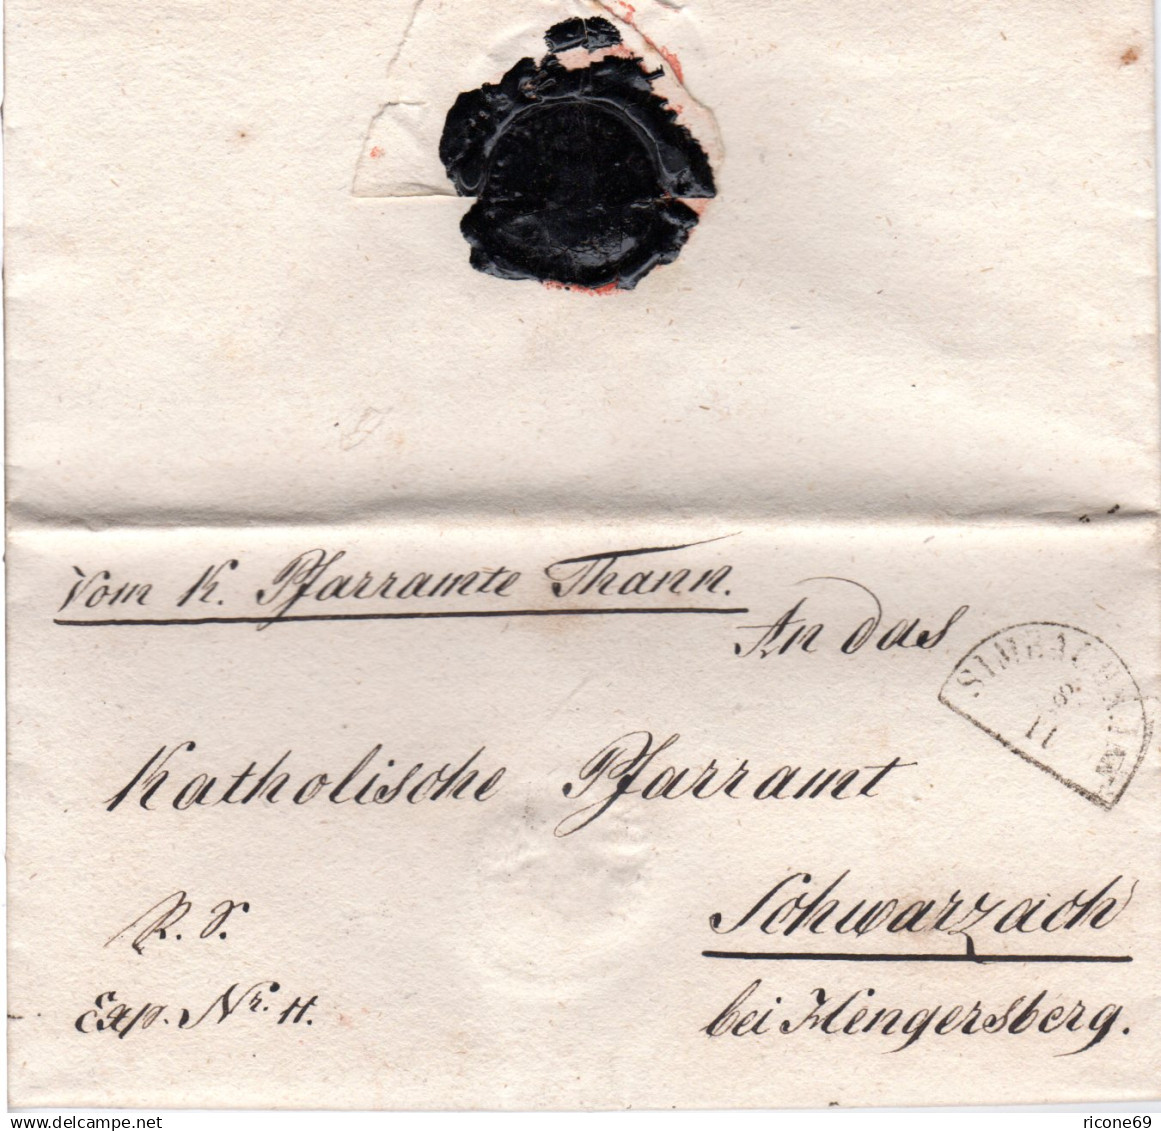 Vom K. Pfarramte Thann.
An das
SIMBACH A. INN
8
11
Katholische Pfarramt
R. S.
Schwarzach
Exp. Nr. 11.
bei Hengersberg.
delcampe.net
ricone69